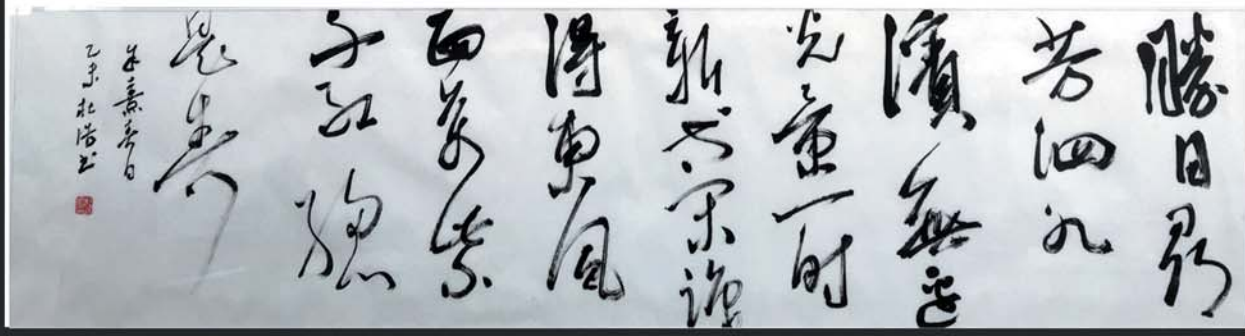 勝日尋
芳泗水
濱無邊
光景一時
新等閑識
得東風
面萬紫
千紅總
是春
朱熹春日
乙未杜浩书